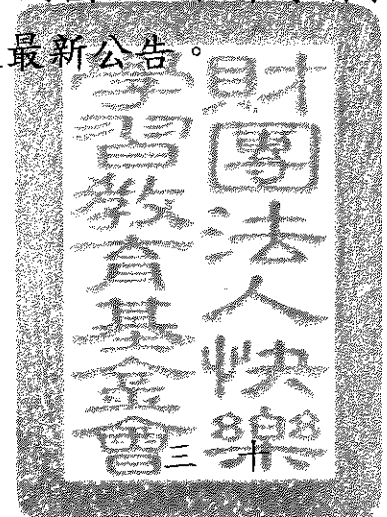 最新公告。
財團法人快樂
學習教育基金會
三 十